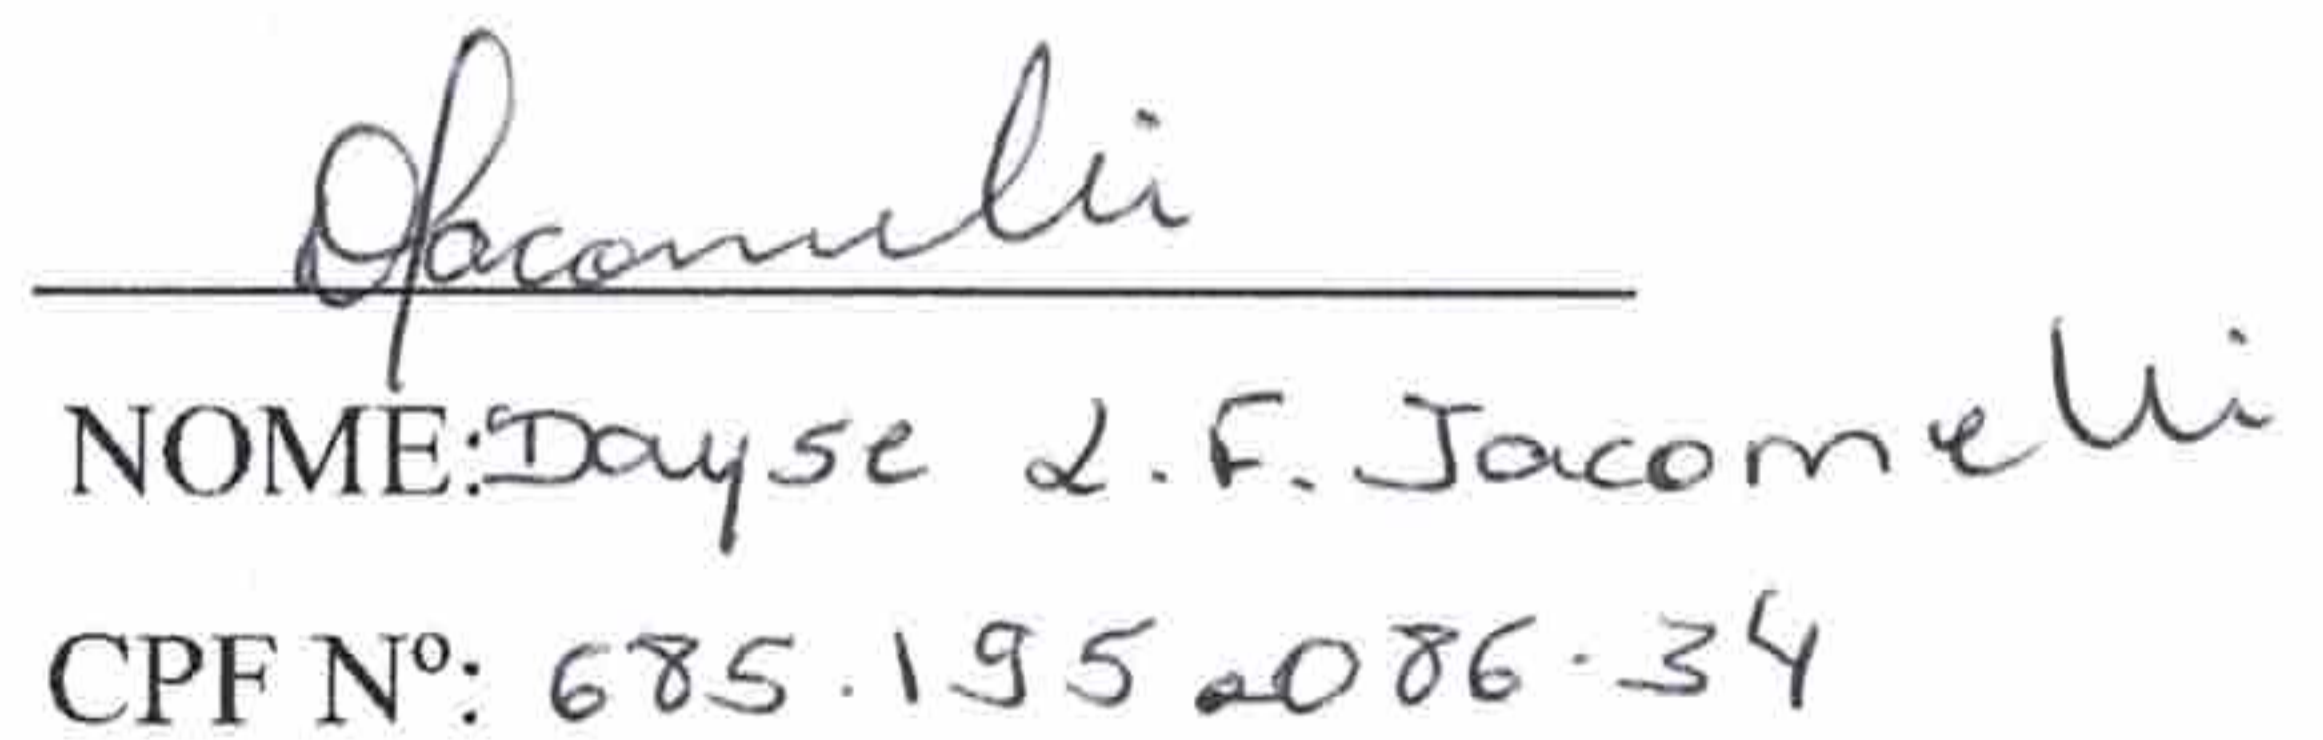 DJacomelli
NOME: Dayse L. F. Jacomelli
CPF Nº: 685.195.086-34